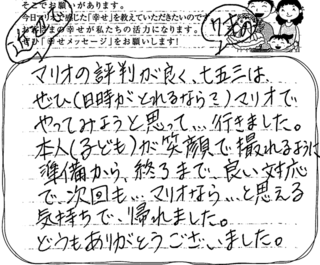 そこでお願いがあります。
今日マリオで感じた「幸せ」を教えていただきたいのです
お客さまの幸せが私たちの活力になります。
ぜひ「幸せメッセージ」をお願いします!
7才の
マリオの評判が良く、七五三は、
ぜひ(日時がとれるなら?)マリオで
やってみようと思って...行きました。
本人(子ども)が笑顔で撮れるように
準備から、終了まで、良い対応
で、次回も...マリオなら...と思える
気持ちで、帰れました。
どうもありがとうございました。